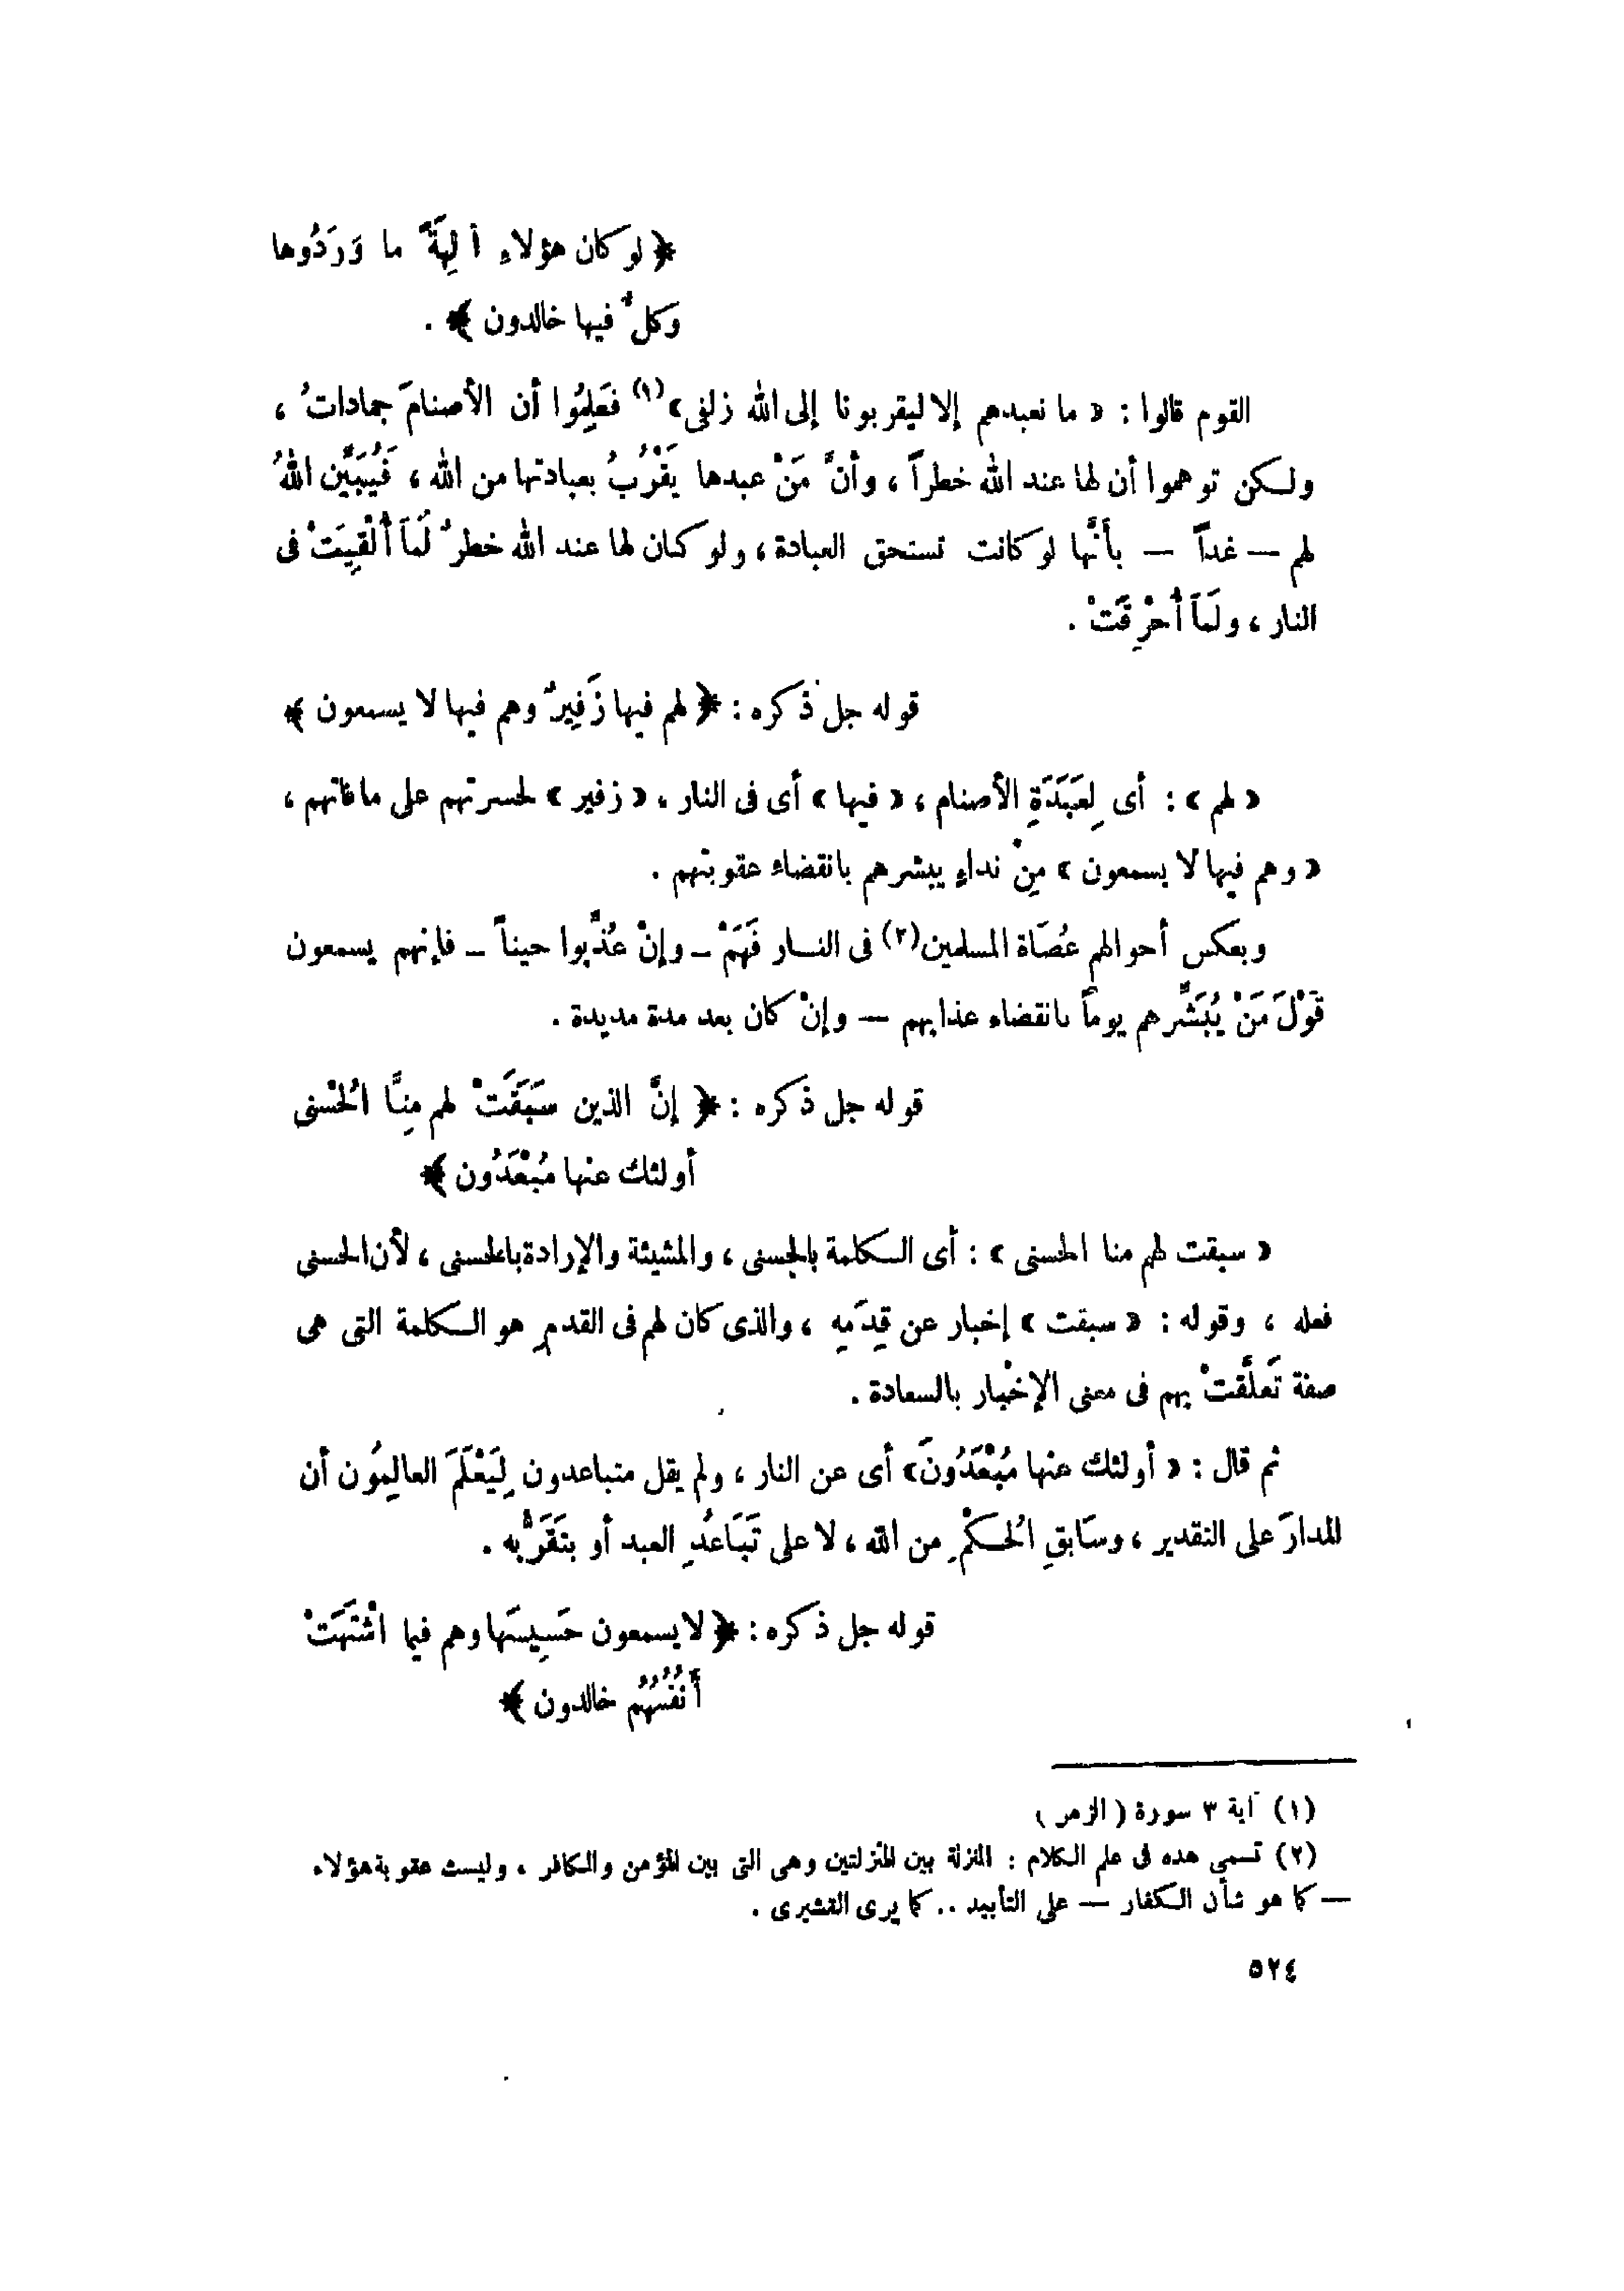 ﴿ لو كان هؤلاءِ آلِهَةً ما وَرَدُوها
وكلٌّ فيها خالدون ﴾ .
القوم قالوا : « ما نعبدهم إلا ليقربونا إلى الله زلفى »(١) فَعَلِمُوا أن الأصنامَ جماداتٌ ،
ولكن توهموا أن لها عند الله خطراً ، وأنَّ مَنْ عبدها يَقْرُبُ بعبادتها من الله ، فَيُبَيِّن اللهُ
لهم — غداً — بأنَّها لو كانت تستحق العبادة ، ولو كان لها عند الله خطرٌ لَمَا أُلْقِيَتْ فى
النار ، ولَمَا أُحْرِقَتْ .
قوله جل ذكره : ﴿ لهم فيها زَفِيرٌ وهم فيها لا يسمعون ﴾
« لهم » : أى لِعَبَدَةِ الأصنام ، « فيها » أى فى النار ، « زفير » لحسرتهم على ما فاتهم ،
« وهم فيها لا يسمعون » مِنْ نداءٍ يبشرهم بانقضاء عقوبتهم .
وبعكس أحوالهم عُصَاة المسلمين(٢) فى النار فَهَمْ – وإنْ عُذِّبوا حيناً – فإنهم يسمعون
قَوْلَ مَنْ يُبَشِّرهم يوماً بانقضاء عذابهم — وإنْ كان بعد مدة مديدة .
قوله جل ذكره : ﴿ إنَّ الذين سَبَقَتْ لهم مِنَّا الُحْسْنى
أولئك عنها مُبْعَدُون ﴾
« سبقت لهم منا الحسنى » : أى الكلمة بالحسنى ، والمشيئة والإرادة بالحسنى ، لأن الحسنى
فعله ، وقوله : « سبقت » إخبار عن قِدَمِه ، والذى كان لهم فى القدمِ هو الكلمة التى هى
صفة تَعلَّقتْ بهم فى معنى الإخْبار بالسعادة .
ثم قال : « أولئك عنها مُبْعَدُونَ » أى عن النار ، ولم يقل متباعدون لِيَعْلَمَ العالِمُون أن
المدارَ على التقدير ، وسَابقِ الُحكْمِ من الله ، لا على تَبَاعُدِ العبد أو بتَقَرُّبه .
قوله جل ذكره : ﴿ لا يسمعون حَسِيسَها وهم فيما اشْتَهَتْ
أَنفُسُهُم خالدون ﴾
(١) آية ٣ سورة ( الزمر )
(٢) تسمى هذه فى علم الكلام : المنزلة بين المنزلتين وهى التى بين المؤمن والكافر ، وليست عقوبة هؤلاء
— كما هو شأن الكفار — على التأبيد .. كما يرى القشيرى .
٥٢٤